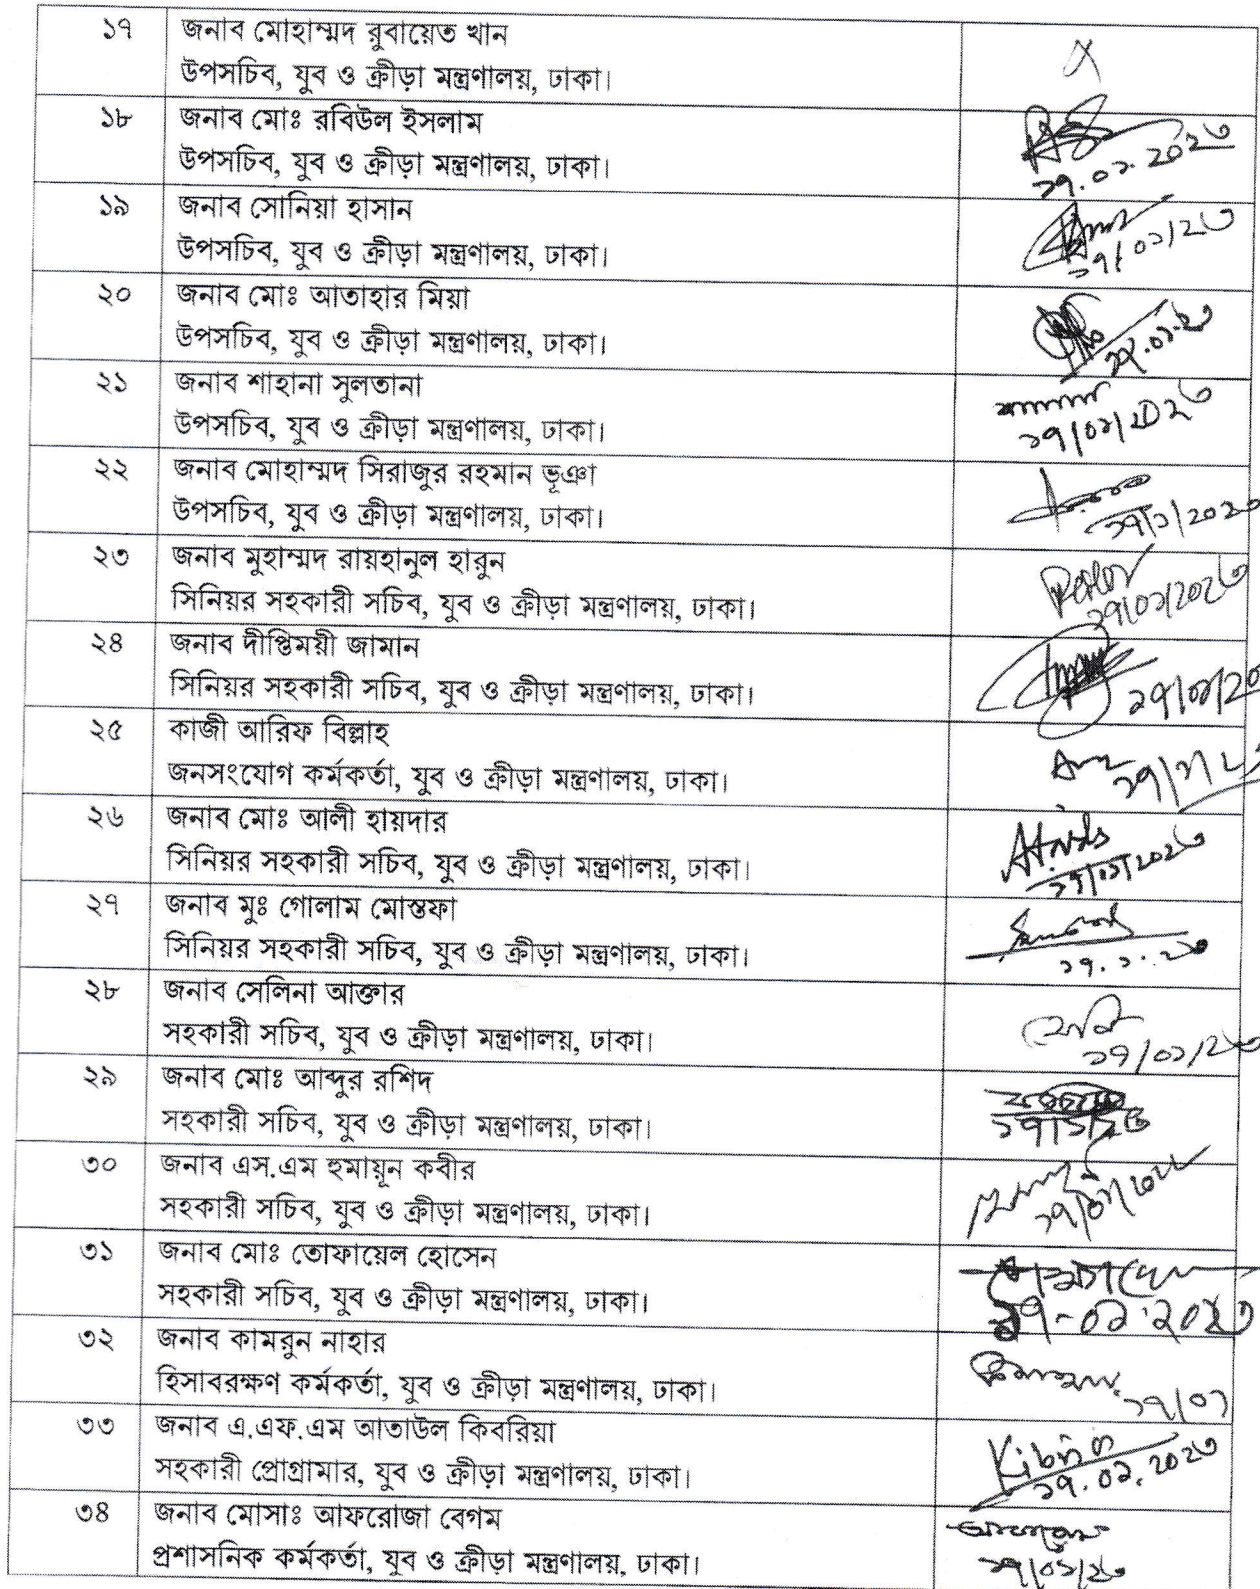 ১৭ জনাব মোহাম্মদ রুবায়েত খান
উপসচিব, যুব ও ক্রীড়া মন্ত্রণালয়, ঢাকা।
১৮ জনাব মোঃ রবিউল ইসলাম
উপসচিব, যুব ও ক্রীড়া মন্ত্রণালয়, ঢাকা।
১৯ জনাব সোনিয়া হাসান
উপসচিব, যুব ও ক্রীড়া মন্ত্রণালয়, ঢাকা।
২০ জনাব মোঃ আতাহার মিয়া
উপসচিব, যুব ও ক্রীড়া মন্ত্রণালয়, ঢাকা।
২১ জনাব শাহানা সুলতানা
উপসচিব, যুব ও ক্রীড়া মন্ত্রণালয়, ঢাকা।
২২ জনাব মোহাম্মদ সিরাজুর রহমান ভূঞা
উপসচিব, যুব ও ক্রীড়া মন্ত্রণালয়, ঢাকা।
২৩ জনাব মুহাম্মদ রায়হানুল হারুন
সিনিয়র সহকারী সচিব, যুব ও ক্রীড়া মন্ত্রণালয়, ঢাকা।
২৪ জনাব দীপ্তিময়ী জামান
সিনিয়র সহকারী সচিব, যুব ও ক্রীড়া মন্ত্রণালয়, ঢাকা।
২৫ কাজী আরিফ বিল্লাহ
জনসংযোগ কর্মকর্তা, যুব ও ক্রীড়া মন্ত্রণালয়, ঢাকা।
২৬ জনাব মোঃ আলী হায়দার
সিনিয়র সহকারী সচিব, যুব ও ক্রীড়া মন্ত্রণালয়, ঢাকা।
২৭ জনাব মুঃ গোলাম মোস্তফা
সিনিয়র সহকারী সচিব, যুব ও ক্রীড়া মন্ত্রণালয়, ঢাকা।
২৮ জনাব সেলিনা আক্তার
সহকারী সচিব, যুব ও ক্রীড়া মন্ত্রণালয়, ঢাকা।
২৯ জনাব মোঃ আব্দুর রশিদ
সহকারী সচিব, যুব ও ক্রীড়া মন্ত্রণালয়, ঢাকা।
৩০ জনাব এস.এম হুমায়ূন কবীর
সহকারী সচিব, যুব ও ক্রীড়া মন্ত্রণালয়, ঢাকা।
৩১ জনাব মোঃ তোফায়েল হোসেন
সহকারী সচিব, যুব ও ক্রীড়া মন্ত্রণালয়, ঢাকা।
৩২ জনাব কামরুন নাহার
হিসাবরক্ষণ কর্মকর্তা, যুব ও ক্রীড়া মন্ত্রণালয়, ঢাকা।
৩৩ জনাব এ.এফ.এম আতাউল কিবরিয়া
সহকারী প্রোগ্রামার, যুব ও ক্রীড়া মন্ত্রণালয়, ঢাকা।
Kibria
৩৪ জনাব মোসাঃ আফরোজা বেগম
প্রশাসনিক কর্মকর্তা, যুব ও ক্রীড়া মন্ত্রণালয়, ঢাকা।